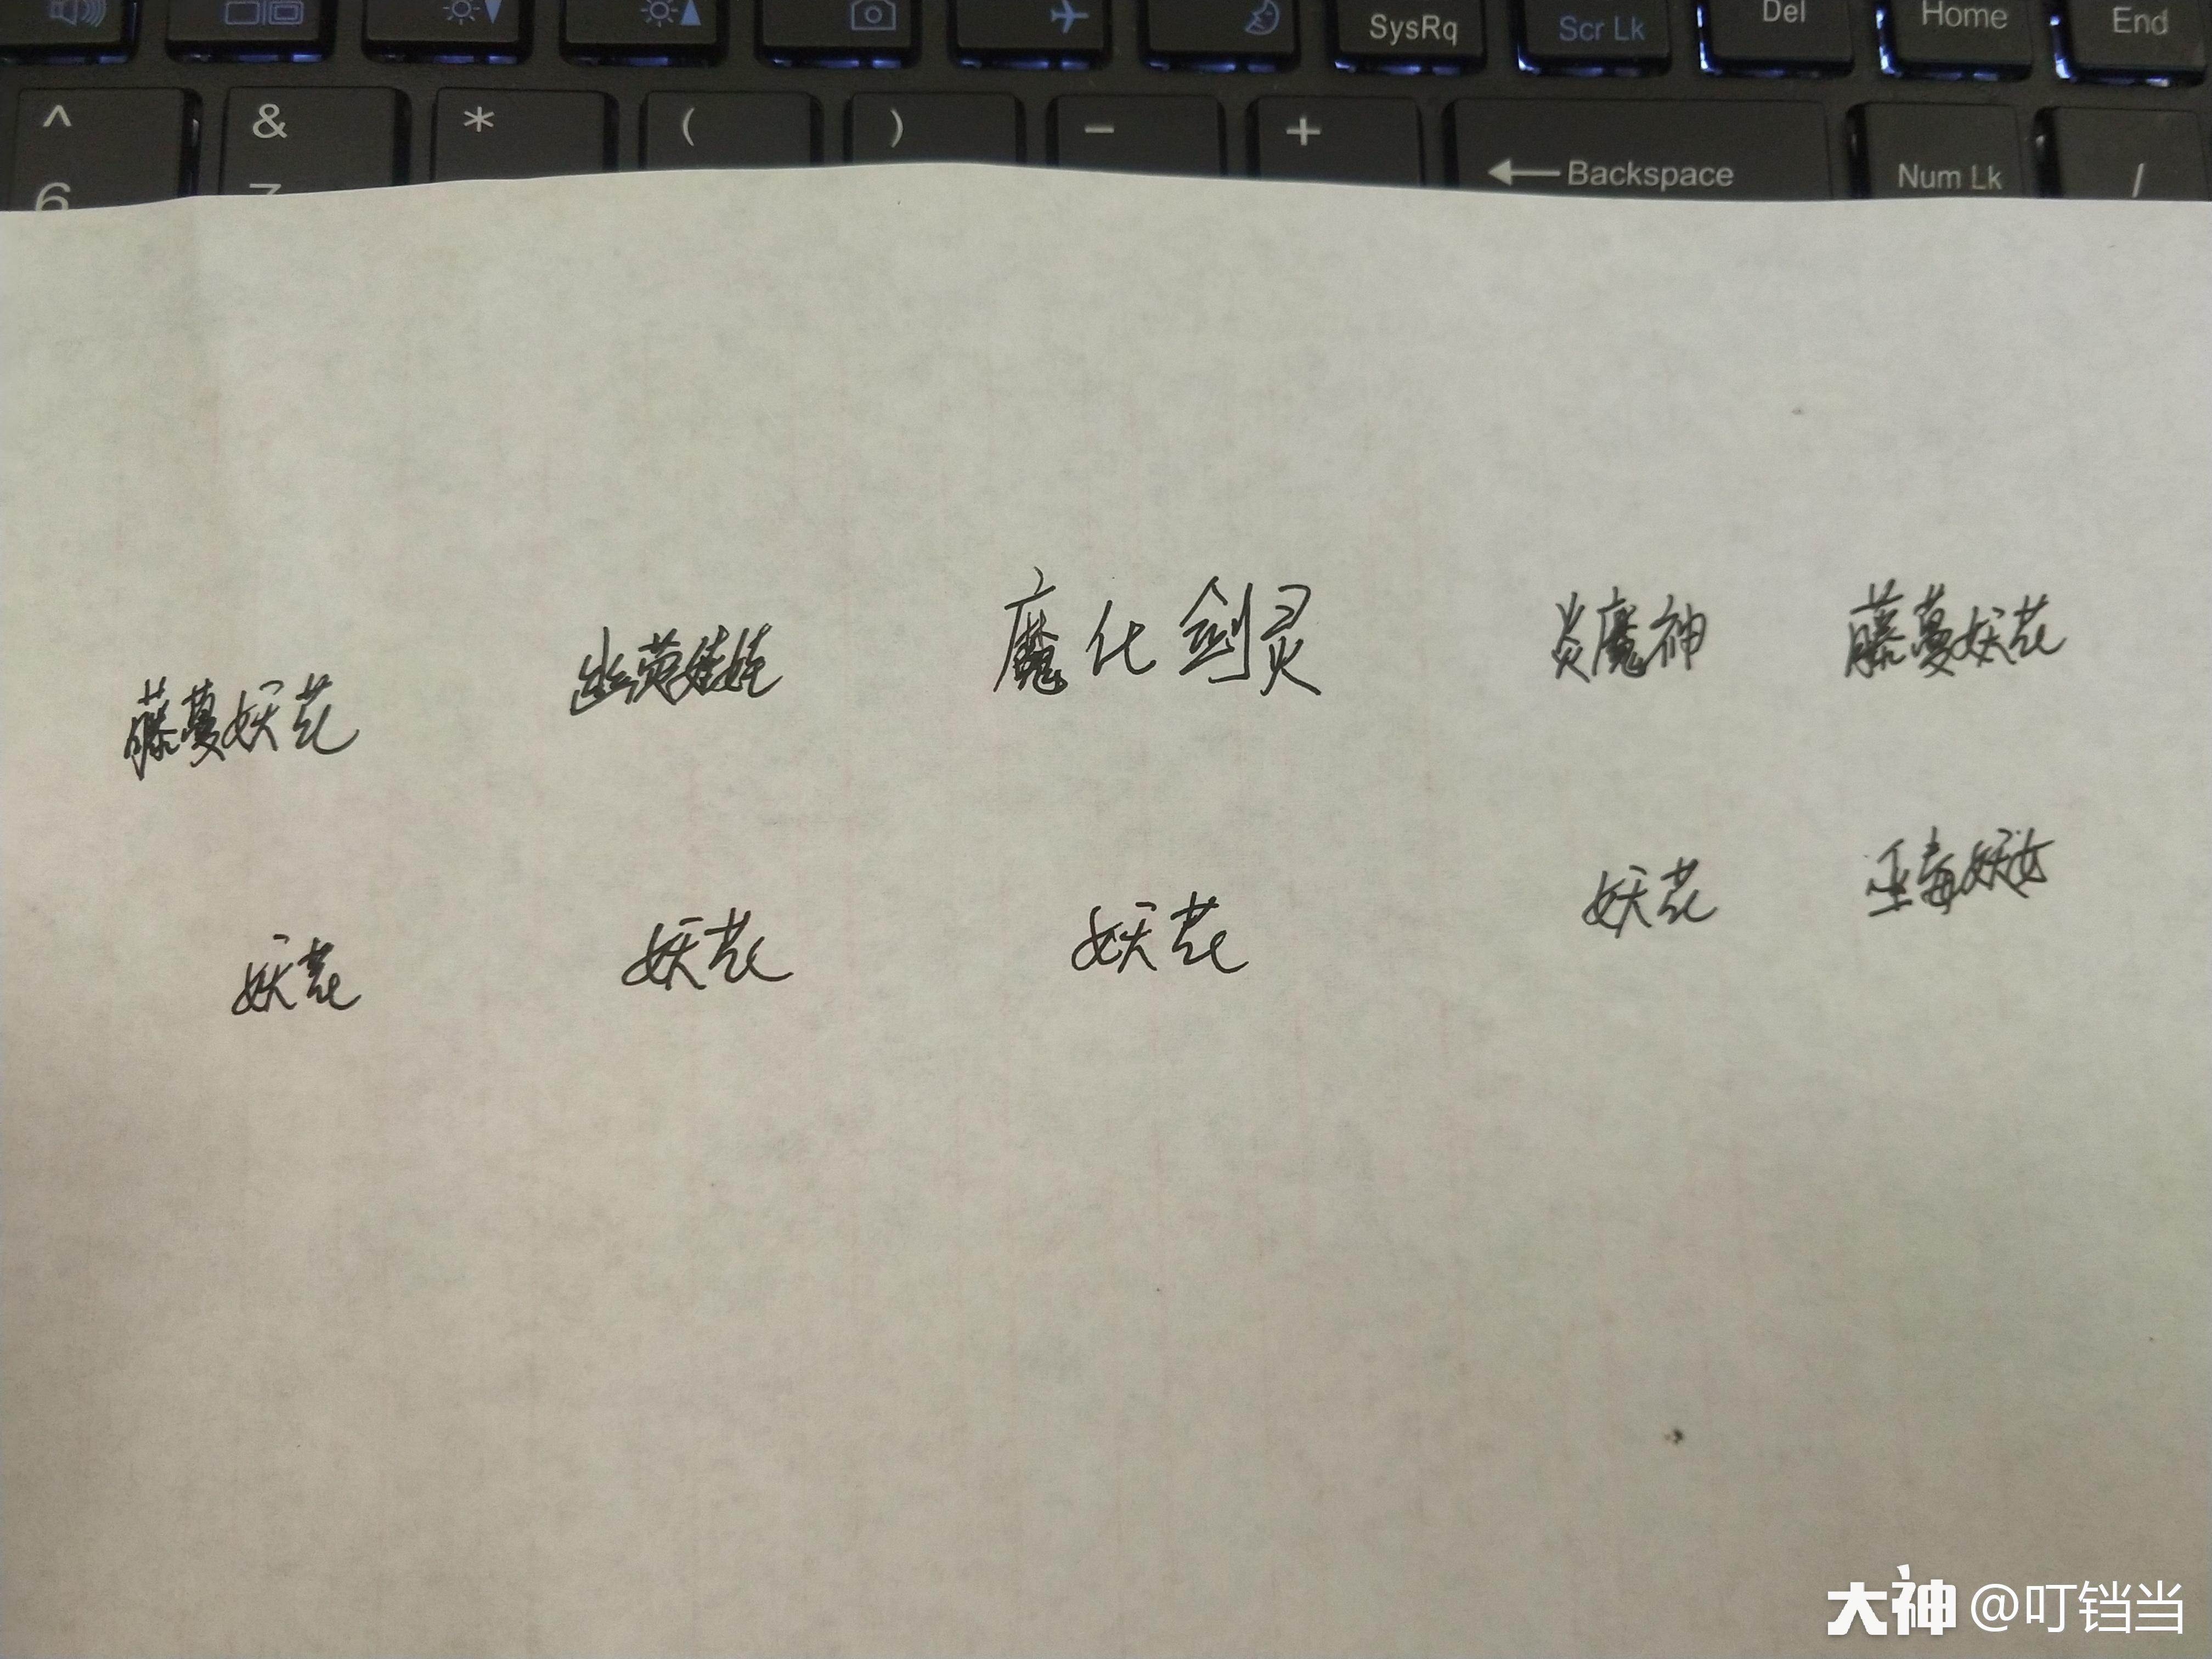 SysRq Scr Lk Del Home End
^ & * ( ) - + Backspace Num Lk /
6 7
藤蔓妖花 幽荧娃娃 魔化剑灵 炎魔神 藤蔓妖花
妖花 妖花 妖花 妖花 巫毒妖女
大神 @叮铛当